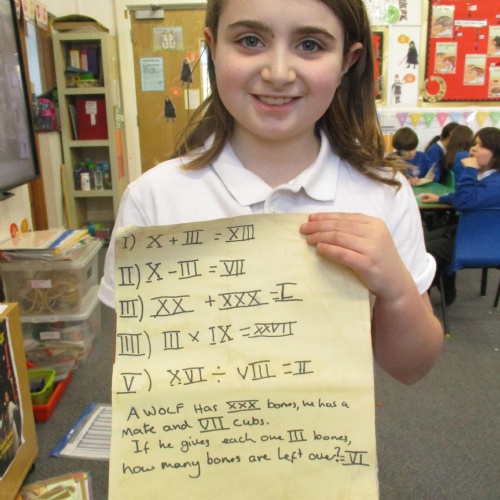 I) X + III = XIII
II) X - III = VII
III) XX + XXX = L
IIII) III × IX = XXVII
V) XVI ÷ VIII = II
A WOLF Has XXX bones, he has a
mate and VII cubs.
If he gives each one III bones,
how many bones are left over? = VI